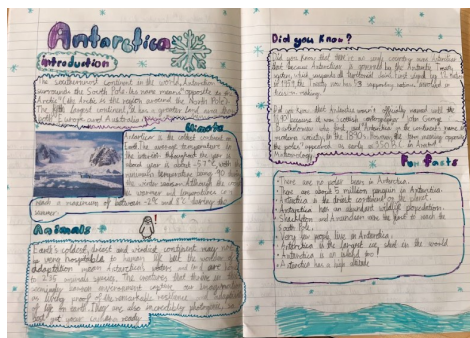 Antarctica
Introduction
The southernmost continent in the world, Antarctica
surrounds the South Pole. Its name means "opposite to the
Arctic" (the Arctic is the region around the North Pole).
The fifth largest continent, it has a greater land area than
both Europe and Australia.
Climate
Antarctica is the coldest
Earth. The average temperature in
the interior throughout the year is
about year is about -57°C, with
minimum temperature being -90 during
the winter season. Although the
warmer and temperatures
reach a maximum of between -2°C and 8°C during the
summer.
Animals
Earth's coldest, driest and windiest continent may not
be very hospitable to human life but the wonders of
adaptation mean Antarctica's waters and ice are
to 235 animals species. The creatures that thrive in this
seemingly barren environment capture our imaginations
as living proof of the remarkable resilience and adaptability
of life on earth. They are also incredibly photogenic, so
Did you Know?
Did you know that there is no country
because Antarctica is governed by the Antarctic Treaty
system, which
in 1959, the treaty
decision making.
Did you know that Antarctica wasn't officially named until the
1890 because it was Scottish cartographer John George
Bartholomew who first used Antarctica as the continent's name
modern society in the 1890s. However, the term meaning opposite
the appeared as early as 350 B.C. in Aristotle's
Meteorology
Fun facts
• There are no polar bears in Antarctica.
• There are about 5 million penguins in Antarctica.
• Antarctica is the driest continent on the planet.
• Antarctica has an abundant wildlife population.
• Shackleton and Amundsen were the first to reach the
South Pole.
• Very few people live in Antarctica.
• Antarctica is the largest ice shed in the world
• Antarctica is an island too!
• Antarctica has a high altitude